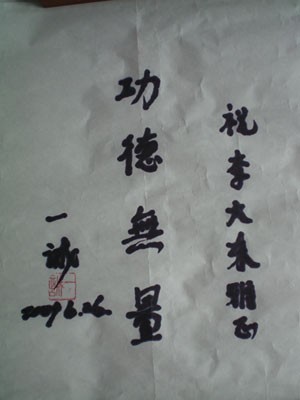 祝李大东雅正
功德無量
一诚
2009.6.26.